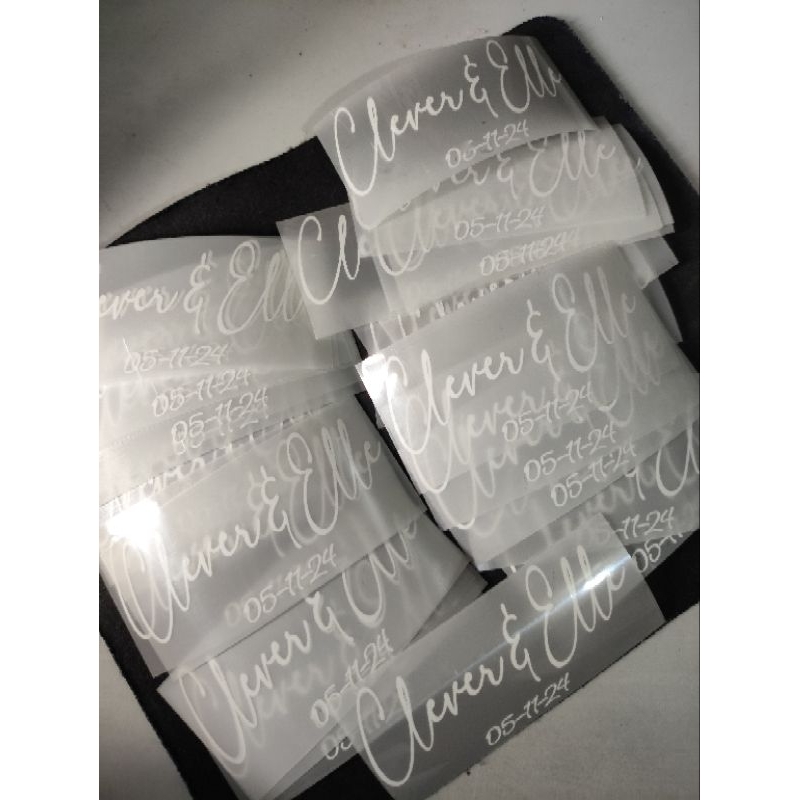 Clever & Elle
05-11-24
05-11-24
05-11-24
Clever & Elle
05-11-24
05-11-24
05-11-24
Clever & Elle
05-11-24
05-11-24
05-11-24
Clever & Elle
05-11-24
Clever &
05-11-24
Clever & Elle
05-11-24